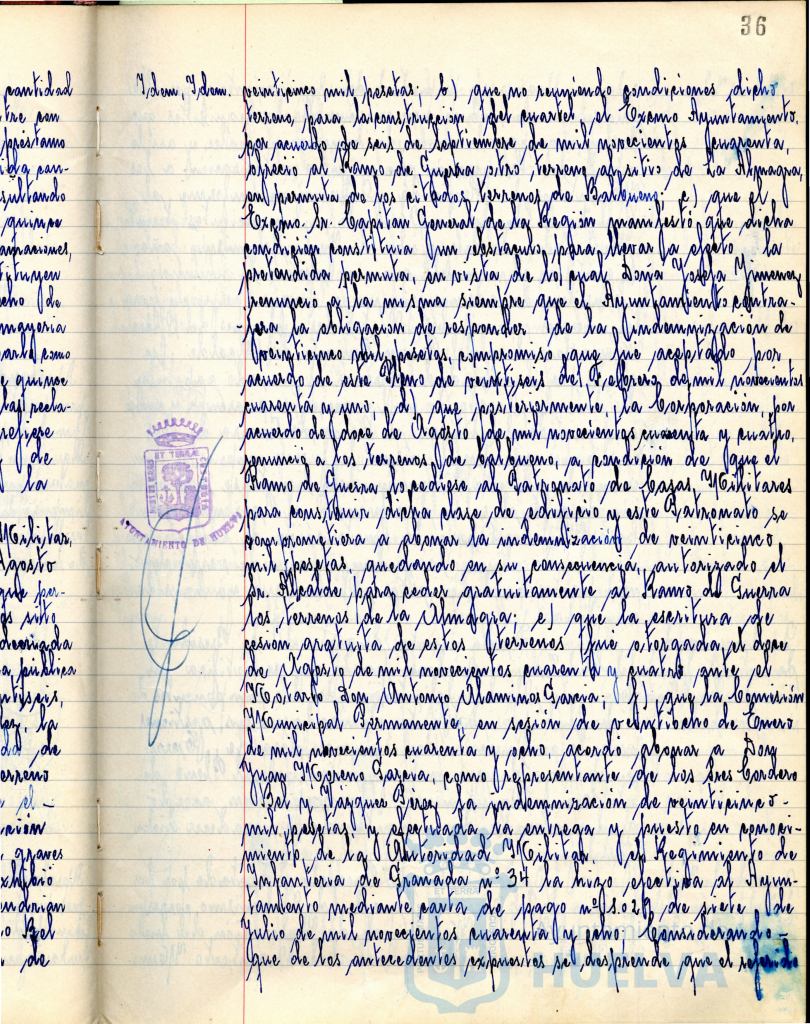 36
cantidad
tre con
préstamo
da can-
sultando
quince
amaciones,
tituyen
cho de
mayoria
arlo como
e quince
las recla-
refiere
y de
la
Militar,
Agosto
que per-
os sito
decuada
a pública
ntiseis,
lez, la
da de
erreno
n el
ción
graves
exhibió
andrian
o Bel
de
Idem, Idem. veinticinco mil pesetas; b) que no reuniendo condiciones dicho
terreno, para la construccion del cuartel, el Excmo Ayuntamiento,
por acuerdo de seis de septiembre de mil novecientos cuarenta,
ofreció al Ramo de Guerra otro terreno al sitio de La Almagra,
en permuta de los citados terrenos de Balbueno; c) que el
Excmo. Sr. Capitan General de la Región manifestó que dicha
condicion constituia un obstaculo para llevar a efecto la
pretendida permuta, en vista de lo cual Doña Josefa Jimenez
renunció a la misma siempre que el Ayuntamiento contra-
jera la obligacion de responder de la indemnizacion de
veinticinco mil pesetas, compromiso que fue aceptado por
acuerdo de este Pleno de veintiseis de Febrero de mil novecientos
cuarenta y uno; d) que posteriormente, la Corporación, por
acuerdo de doce de Agosto de mil novecientos cuarenta y cuatro,
renunció a los terrenos de Balbueno, a condición de que el
Ramo de Guerra lo cediese al Patronato de Casas Militares
para construir dicha clase de edificio y este Patronato se
comprometiera a abonar la indemnización de veinticinco
mil pesetas, quedando en su consecuencia, autorizado el
Sr. Alcalde para ceder gratuitamente al Ramo de Guerra
los terrenos de la Almagra; e) que la escritura de
cesión gratuita de estos terrenos fue otorgada el doce
de Agosto de mil novecientos cuarenta y cuatro ante el
Notario Don Antonio Alaminos Garcia; f) que la Comisión
Municipal Permanente, en sesión de veintiocho de Enero
de mil novecientos cuarenta y ocho, acordó abonar a Don
Juan Moreno Garcia, como representante de los Sres Cordero
Bel y Vázquez Pérez la indemnización de veinticinco
mil pesetas y efectuada la entrega y puesto en conoci-
miento de la Autoridad Militar, el Regimiento de
Infanteria de Granada nº 34 la hizo efectiva al Ayun-
tamiento mediante carta de pago nº 1.029 de siete de
Julio de mil novecientos cuarenta y ocho. Considerando
que de los antecedentes expuestos se desprende que el referido
PORTUS MARIS ET TERRAE CUSTODIA
AYUNTAMIENTO DE HUELVA
HUELVA